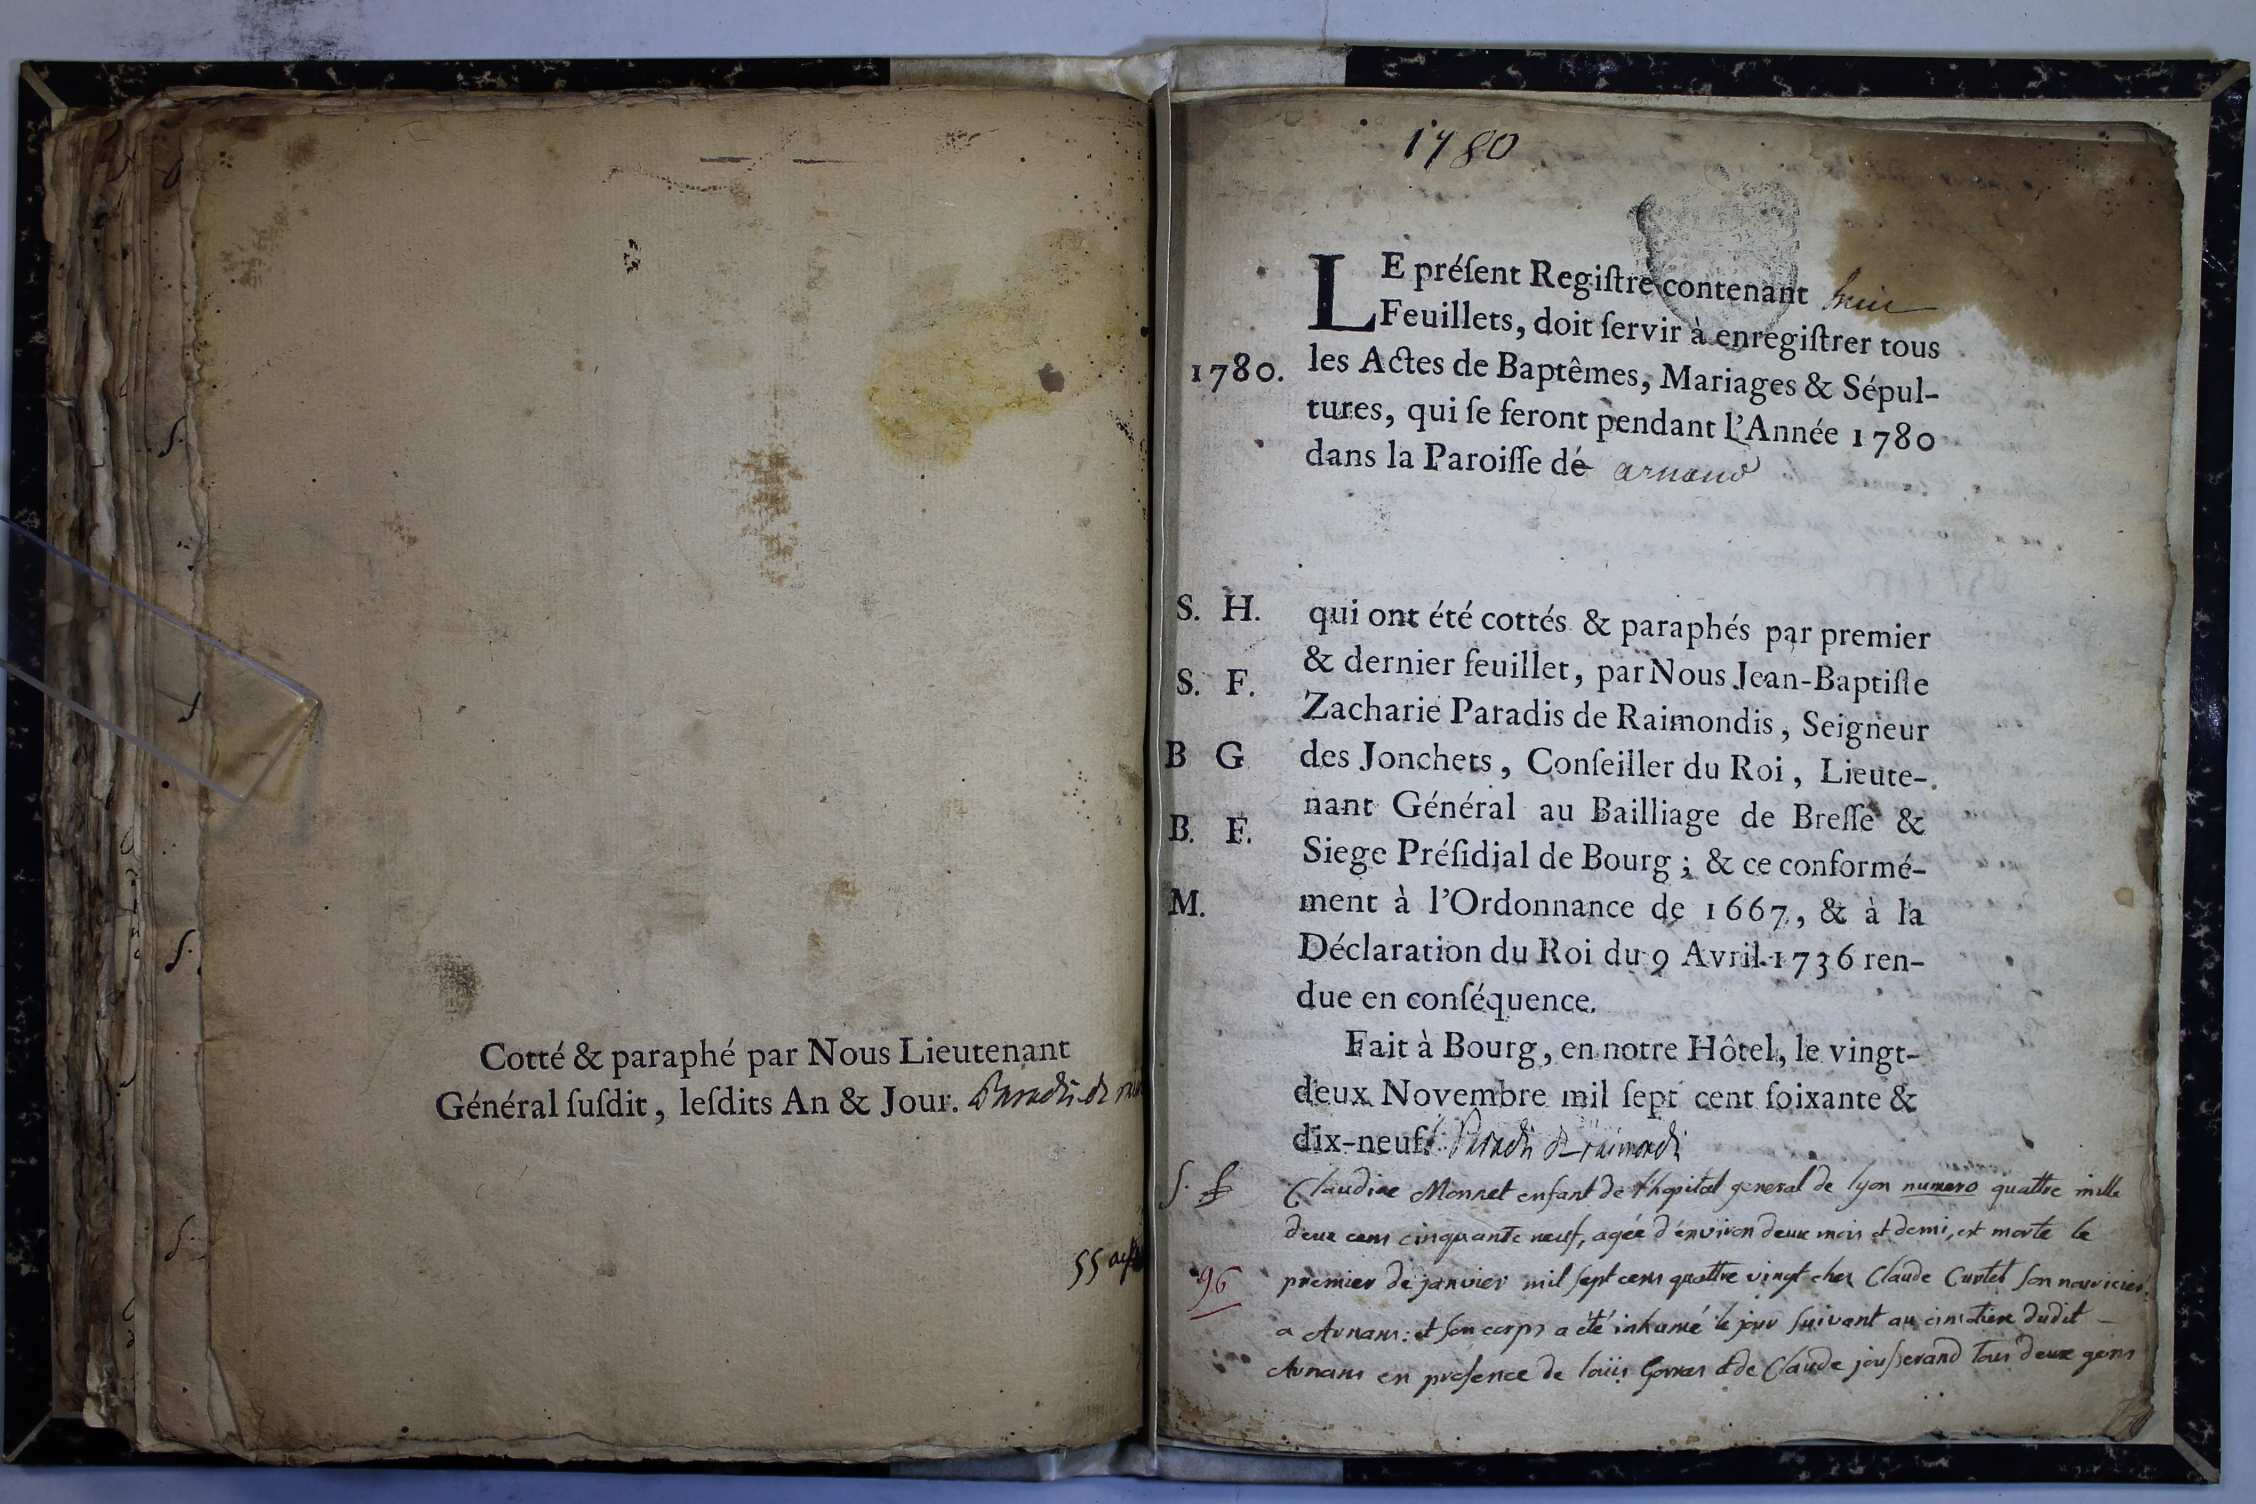 Cotté & paraphé par Nous Lieutenant
Général ſuſdit, leſdits An & Jour. Paradis de
55
1780
LE préſent Regiſtre contenant huit
Feuillets, doit ſervir à enregiſtrer tous
1780. les Actes de Baptêmes, Mariages & Sépul-
tures, qui ſe feront pendant l'Année 1780
dans la Paroiſſe de arnans
S. H. qui ont été cottés & paraphés par premier
& dernier feuillet, par Nous Jean-Baptiſte
S. F. Zacharie Paradis de Raimondis, Seigneur
B G des Jonchets, Conſeiller du Roi, Lieute-
nant Général au Bailliage de Breſſe &
B. F. Siege Préſidial de Bourg; & ce conformé-
M. ment à l'Ordonnance de 1667, & à la
Déclaration du Roi du 9 Avril 1736 ren-
due en conſéquence.
Fait à Bourg, en notre Hôtel, le vingt-
deux Novembre mil ſept cent ſoixante &
dix-neuf. Paradis De raimondis
S. f Claudine Monnet enfant de l'hopital general de lyon numero quattre mille
deux cens cinquante neuf, agée d'environ deux mois et demi, est morte le
96 premier de janvier mil sept cens quattre vingt chez Claude Curtet son nouricier
a Arnans: et son corps a été inhumé le jour suivant au cimetiere dudit
Arnans en presence de loüis Gorras & de Claude jousserand tous deux gens